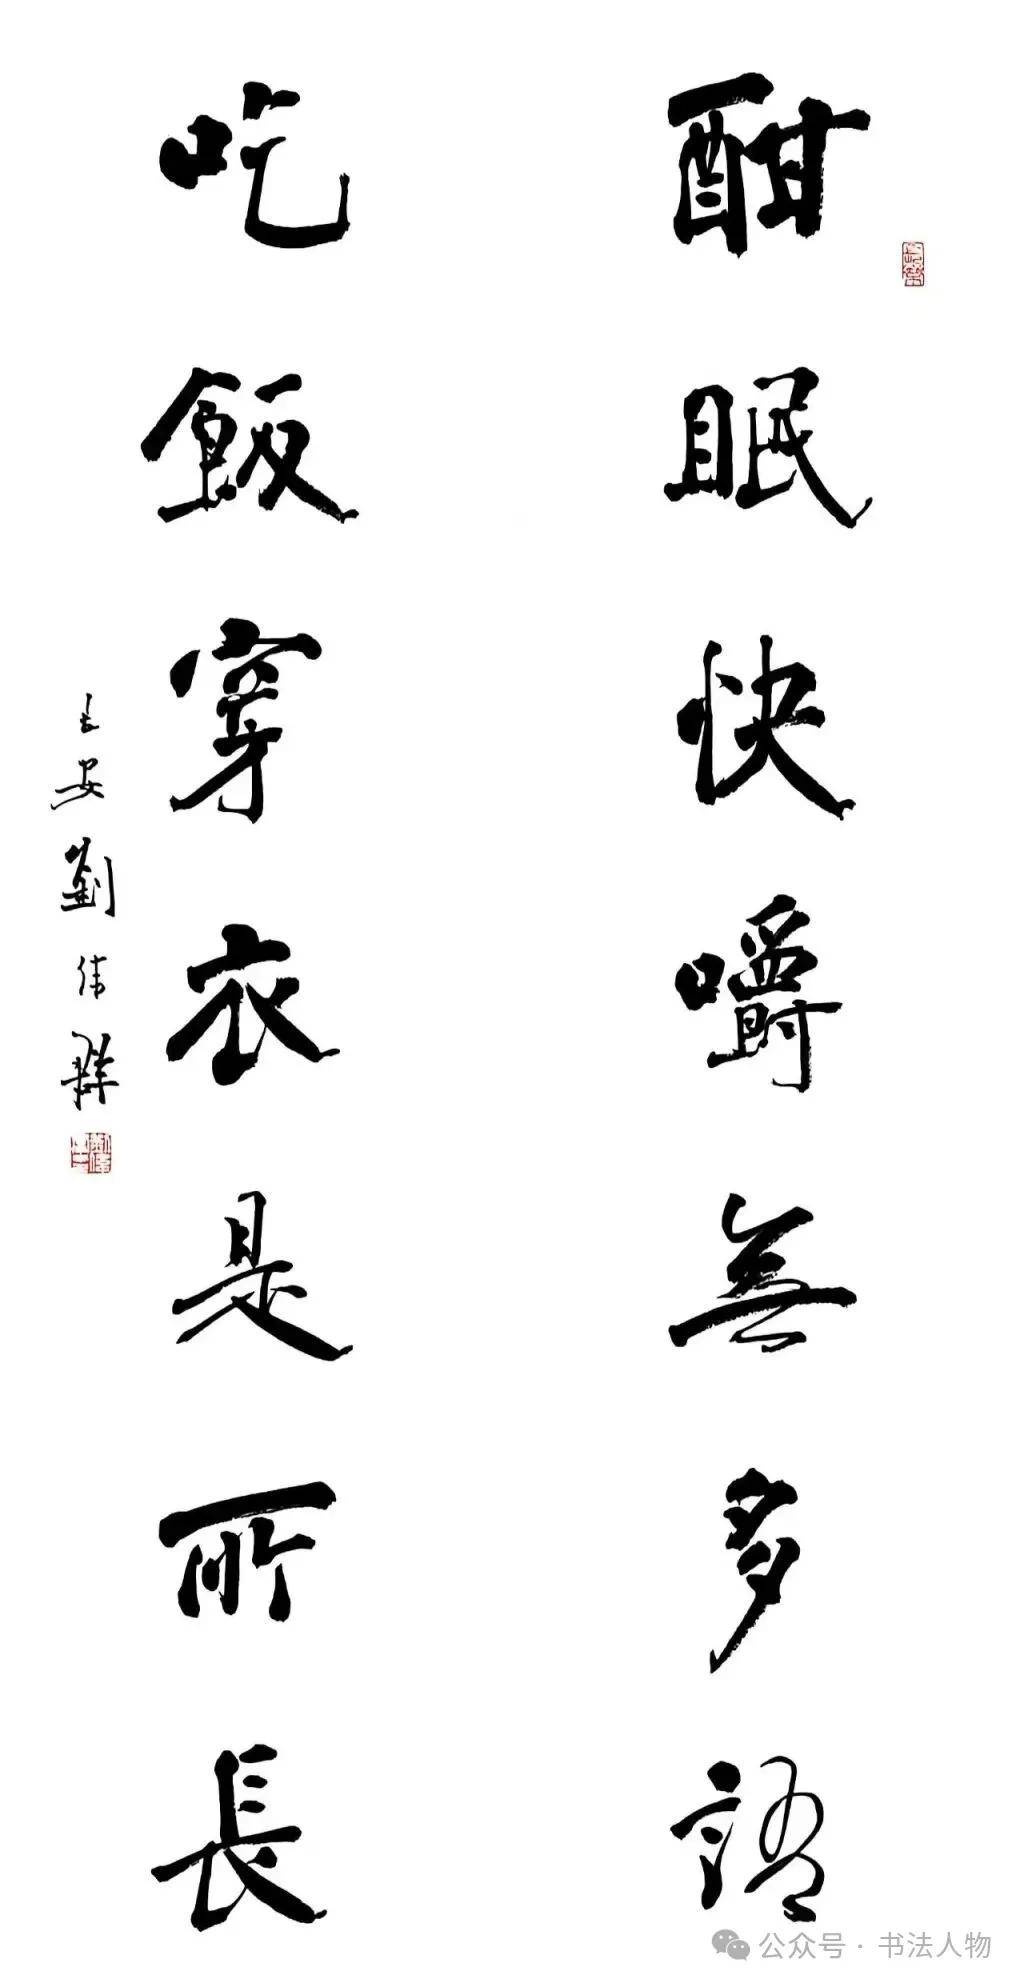 酣眠快嚼無多語
吃飯穿衣是所長
長安劉偉群
公众号·书法人物